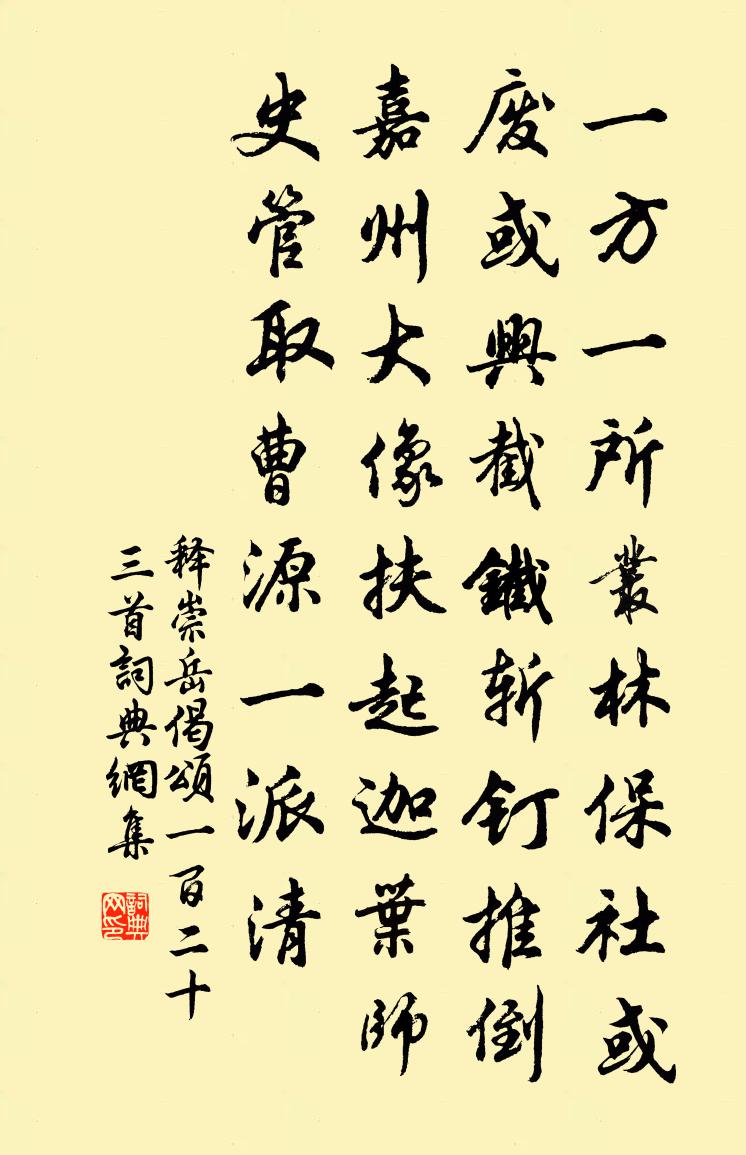 一方一所叢林保社或
廢或興截鐵斬釘推倒
嘉州大像扶起迦葉師
史管取曹源一派清
释崇岳偈頌一百二十
三首詞典網集
詞典网印